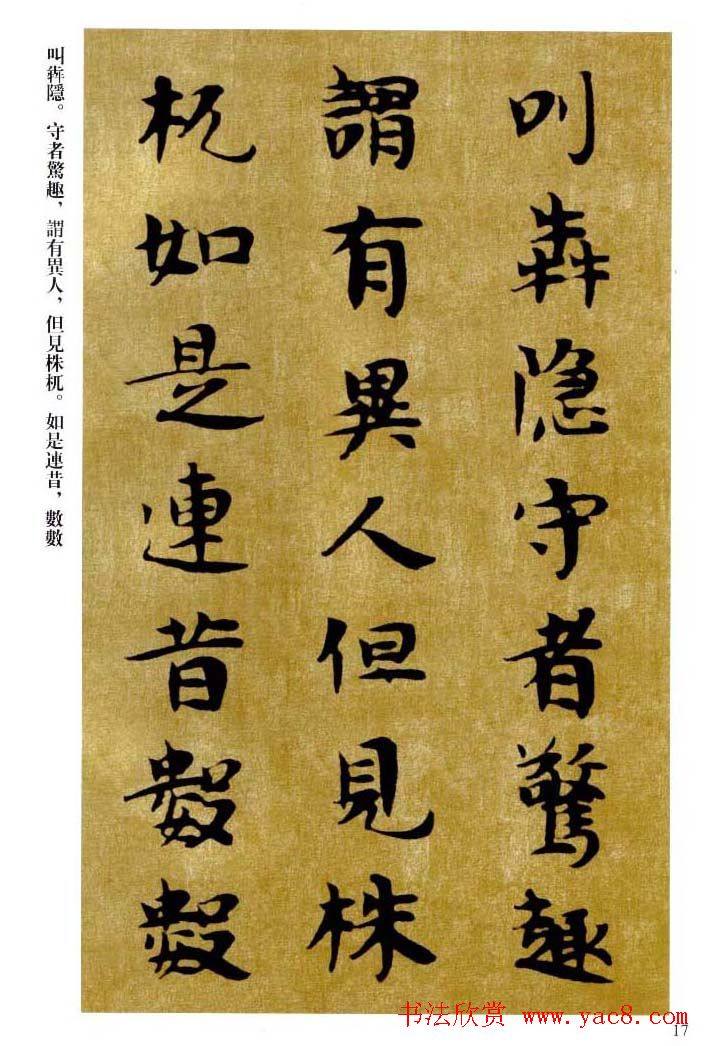 叫犇隱守者驚趣
謂有異人但見株
杌如是連昔數數
叫犇隱。守者驚趣，謂有異人，但見株杌。如是連昔，數數
书法欣赏 www.yac8.com
17